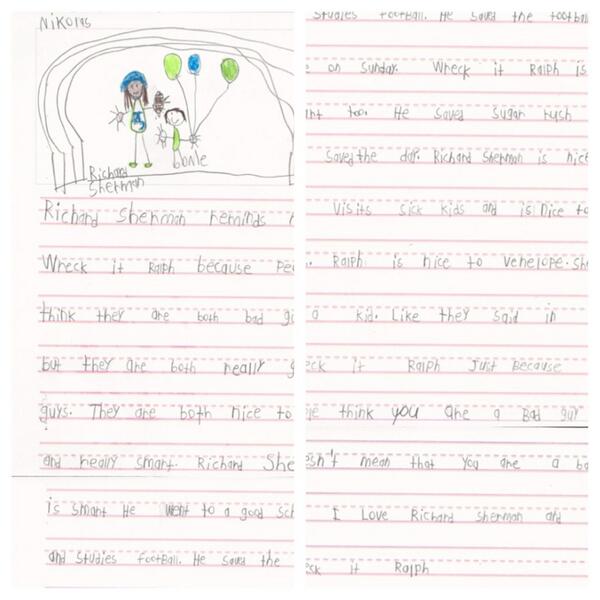 Nikolas
Richard
Sherman
bonle
Richard Sherman reminds
Wreck it Ralph because Pe
think they are both bad g
but they are both really g
guys. They are both nice to
and really smart. Richard She
is smart He went to a good sc
and studies football. He saved the
studies football. He saved the footbal
on Sunday. Wreck it Ralph is
too. He saved sugar rush
saved the day. Richard Sherman is nice
Visits sick kids and is nice to
Ralph is nice to Venelope. She
a kid. Like they said in
eck it Ralph Just because
ple think you are a Bad guy
esn't mean that you are a ba
I Love Richard Sherman and
eck it Ralph